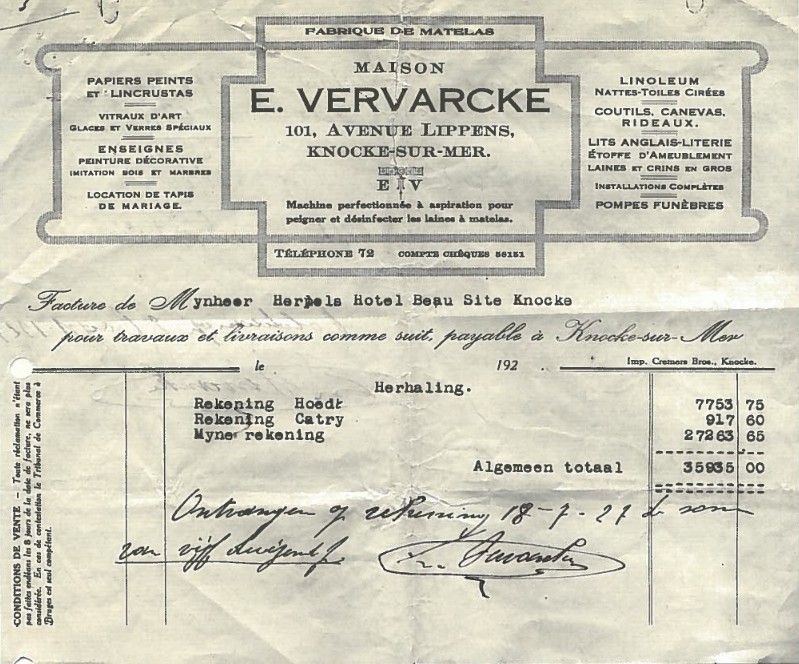 FABRIQUE DE MATELAS
PAPIERS PEINTS
ET LINCRUSTAS
VITRAUX D'ART
GLACES ET VERRES SPÉCIAUX
ENSEIGNES
PEINTURE DÉCORATIVE
IMITATION BOIS ET MARBRES
LOCATION DE TAPIS
DE MARIAGE.
MAISON
E. VERVARCKE
101, AVENUE LIPPENS,
KNOCKE-SUR-MER.
E V
Machine perfectionnée à aspiration pour
peigner et désinfecter les laines à matelas.
LINOLEUM
NATTES-TOILES CIRÉES
COUTILS, CANEVAS,
RIDEAUX.
LITS ANGLAIS-LITERIE
ÉTOFFE D'AMEUBLEMENT
LAINES ET CRINS EN GROS
INSTALLATIONS COMPLÈTES
POMPES FUNÈBRES
TÉLÉPHONE 72 COMPTE CHÈQUES 56151
Facture de Mynheer Herpels Hotel Beau Site Knocke
pour travaux et livraisons comme suit, payable à Knocke-sur-Mer
le 192 .
Imp. Cremers Bros., Knocke.
Herhaling.
Rekening Hoedt 7753 75
Rekening Catry 917 60
Myne rekening 27263 65
Algemeen totaal 35935 00
Ontvangen op rekening 18-7-27 de som
van vijf duizend fr.
CONDITIONS DE VENTE — Toute réclamation n'étant
pas faites endéans les 8 jours de la date de facture, ne sera plus
considérée. En cas de contestation le Tribunal de Commerce à
Bruges est seul compétent.